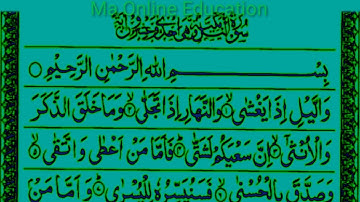 Ma Online Education
بِسْمِ اللهِ الرَّحْمٰنِ الرَّحِيْمِ
وَالَّيْلِ اِذَا يَغْشٰى ۙ وَالنَّهَارِ اِذَا تَجَلّٰى ۙ وَمَا خَلَقَ الذَّكَرَ
وَالْاُنْثٰٓى ۙ اِنَّ سَعْيَكُمْ لَشَتّٰى ؕ فَاَمَّا مَنْ اَعْطٰى وَاتَّقٰى ۙ
وَصَدَّقَ بِالْحُسْنٰى ۙ فَسَنُيَسِّرُهٗ لِلْيُسْرٰى ؕ وَاَمَّا مَنْ